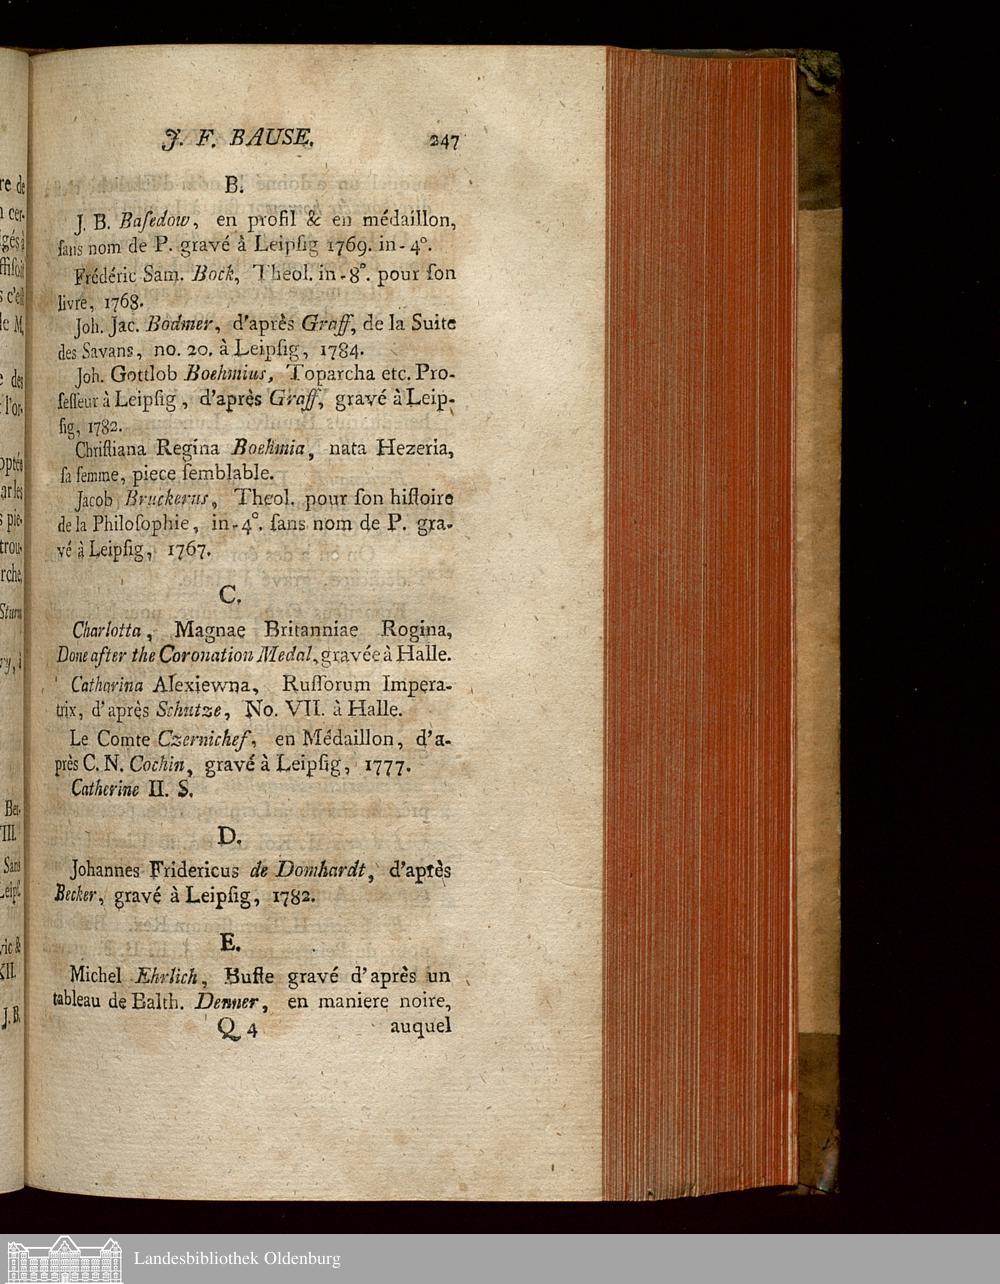 J. F. BAUSE. 247
B.
J. B. Baſedow, en profil & en médaillon,
ſans nom de P. gravé à Leipſig 1769. in-4°.
Frédéric Sam. Bock, Theol. in-8°. pour ſon
livre, 1768.
Joh. Jac. Bodmer, d'après Graff, de la Suite
des Savans, no. 20. à Leipſig, 1784.
Joh. Gottlob Boehmius, Toparcha etc. Pro-
feſſeur à Leipſig, d'après Graff, gravé à Leip-
ſig, 1782.
Chriſtiana Regina Boehmia, nata Hezeria,
ſa femme, piece ſemblable.
Jacob Bruckerus, Theol. pour ſon hiſtoire
de la Philoſophie, in-4°. ſans nom de P. gra-
vé à Leipſig, 1767.
C.
Charlotta, Magnae Britanniae Rogina,
Done after the Coronation Medal, gravée à Halle.
Catharina Alexiewna, Ruſſorum Impera-
trix, d'après Schutze, No. VII. à Halle.
Le Comte Czernichef, en Médaillon, d'a-
près C. N. Cochin, gravé à Leipſig, 1777.
Catherine II. S.
D.
Johannes Fridericus de Domhardt, d'après
Becker, gravé à Leipſig, 1782.
E.
Michel Ehrlich, Buſte gravé d'après un
tableau de Balth. Denner, en maniere noire,
Q 4 auquel
Landesbibliothek Oldenburg